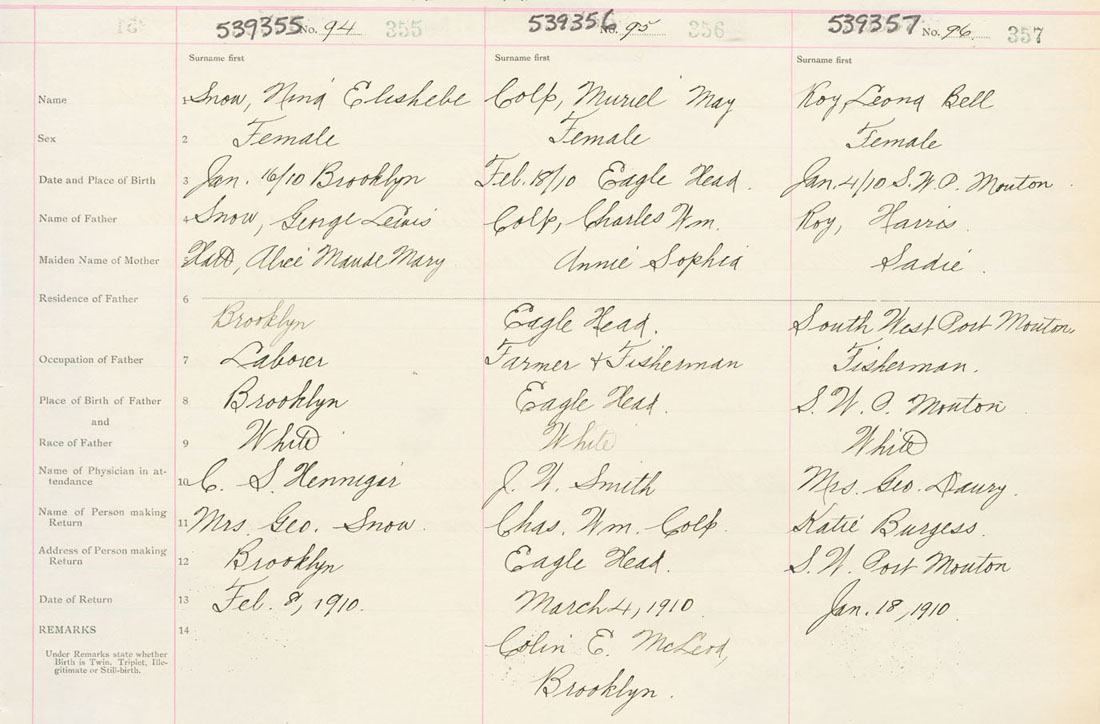 539355 No. 94 355 539356 No. 95 356 539357 No. 96 357
Surname first Surname first Surname first
Name 1 Snow, Nina Elishebe Colp, Muriel May Roy Leona Bell
Sex 2 Female Female Female
Date and Place of Birth 3 Jan. 16/10 Brooklyn Feb. 18/10 Eagle Head. Jan. 4/10 S. W. P. Mouton.
Name of Father 4 Snow, George Lewis Colp, Charles Wm. Roy, Harris.
Maiden Name of Mother Hatt, Alice Maude Mary Annie Sophia Sadie.
Residence of Father 6
Brooklyn Eagle Head. South West Port Mouton.
Occupation of Father 7 Laborer Farmer & Fisherman Fisherman.
Place of Birth of Father 8 Brooklyn Eagle Head. S. W. P. Mouton
and
Race of Father 9 White White White
Name of Physician in at-
tendance 10 C. S. Hennigar J. W. Smith Mrs. Geo. Daury.
Name of Person making
Return 11 Mrs. Geo. Snow. Chas. Wm. Colp. Katie Burgess.
Address of Person making
Return 12 Brooklyn Eagle Head. S. W. Port Mouton
Date of Return 13 Feb. 8, 1910. March 4, 1910 Jan. 18, 1910.
REMARKS 14
Colin E. McLeod,
Under Remarks state whether
Birth is Twin, Triplet, Ille-
gitimate or Still-birth.
Brooklyn.